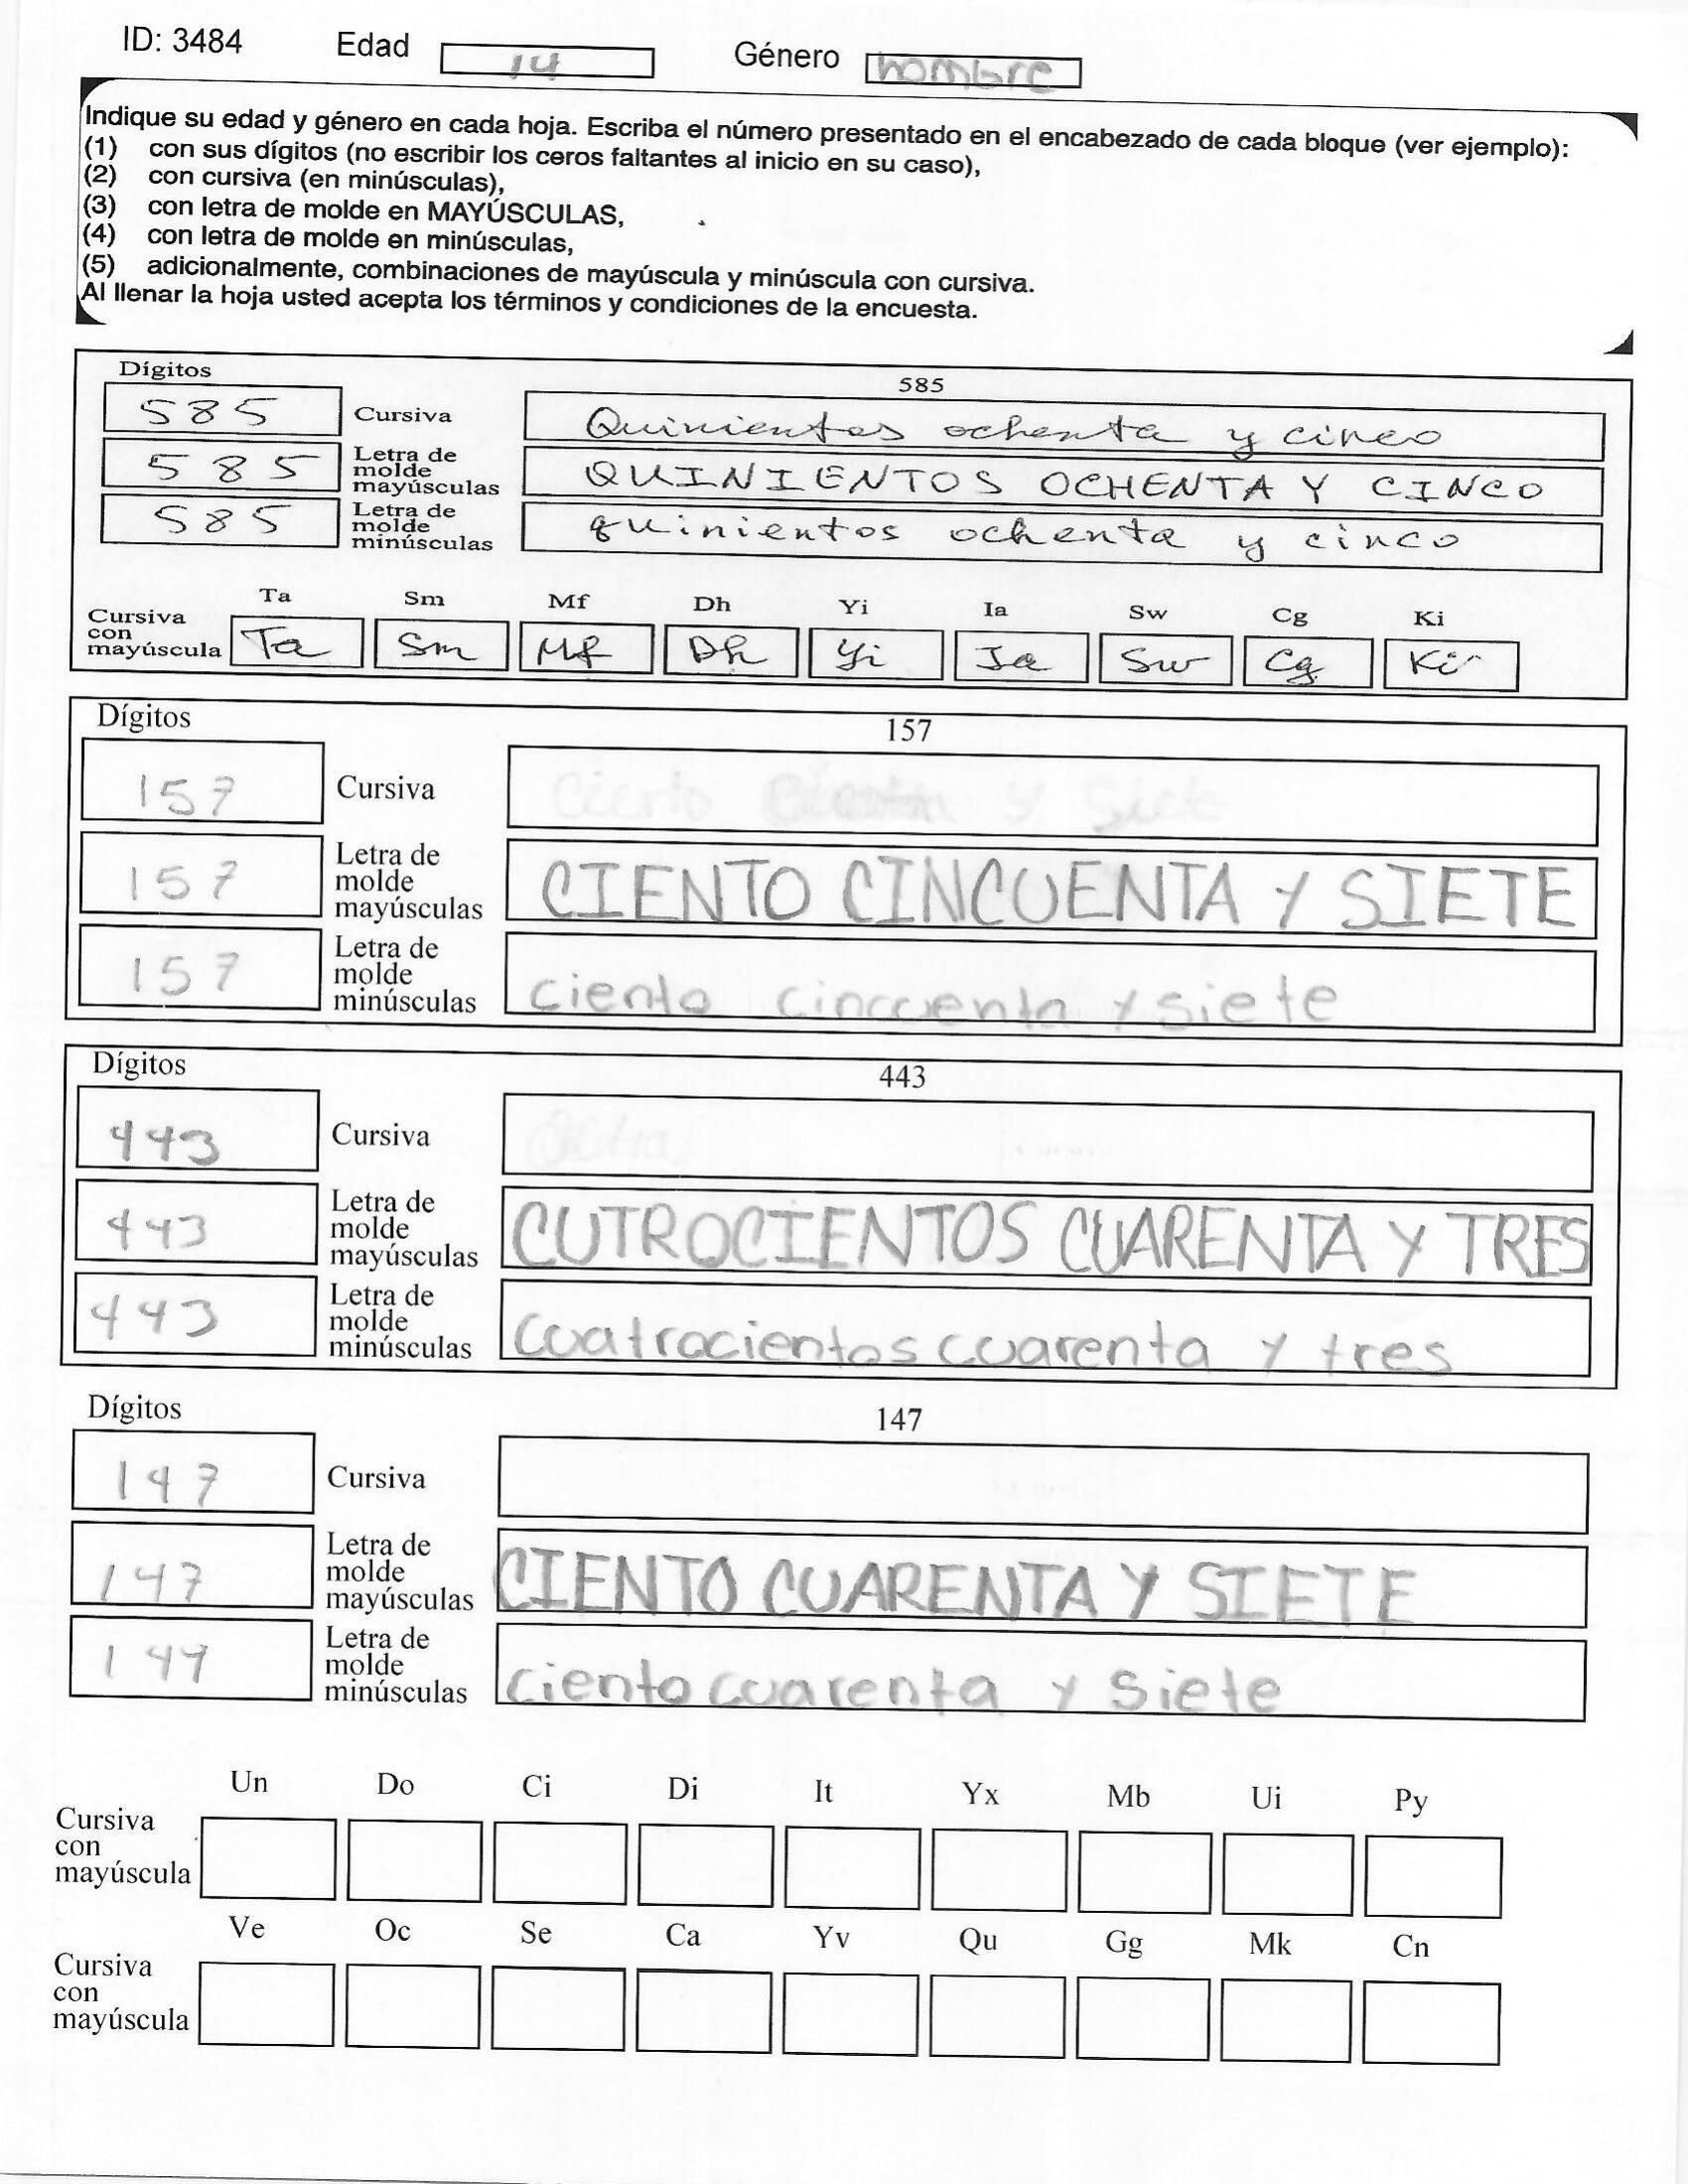 ID: 3484 Edad 14 Género hombre
Indique su edad y género en cada hoja. Escriba el número presentado en el encabezado de cada bloque (ver ejemplo):
(1) con sus dígitos (no escribir los ceros faltantes al inicio en su caso),
(2) con cursiva (en minúsculas),
(3) con letra de molde en MAYÚSCULAS,
(4) con letra de molde en minúsculas,
(5) adicionalmente, combinaciones de mayúscula y minúscula con cursiva.
Al llenar la hoja usted acepta los términos y condiciones de la encuesta.
Dígitos 585
585 Cursiva Quinientos ochenta y cinco
585 Letra de molde mayúsculas QUINIENTOS OCHENTA Y CINCO
585 Letra de molde minúsculas quinientos ochenta y cinco
Ta Sm Mf Dh Yi Ia Sw Cg Ki
Cursiva con mayúscula Ta Sm Mf Dh Yi Ia Sw Cg Ki
Dígitos 157
157 Cursiva Ciento y Siete
157 Letra de molde mayúsculas CIENTO CINCUENTA Y SIETE
157 Letra de molde minúsculas ciento cinccuenta y siete
Dígitos 443
443 Cursiva
443 Letra de molde mayúsculas CUTROCIENTOS CUARENTA Y TRES
443 Letra de molde minúsculas cuatrocientos cuarenta y tres
Dígitos 147
147 Cursiva
147 Letra de molde mayúsculas CIENTO CUARENTA Y SIETE
147 Letra de molde minúsculas ciento cuarenta y siete
Un Do Ci Di It Yx Mb Ui Py
Cursiva con mayúscula
Ve Oc Se Ca Yv Qu Gg Mk Cn
Cursiva con mayúscula